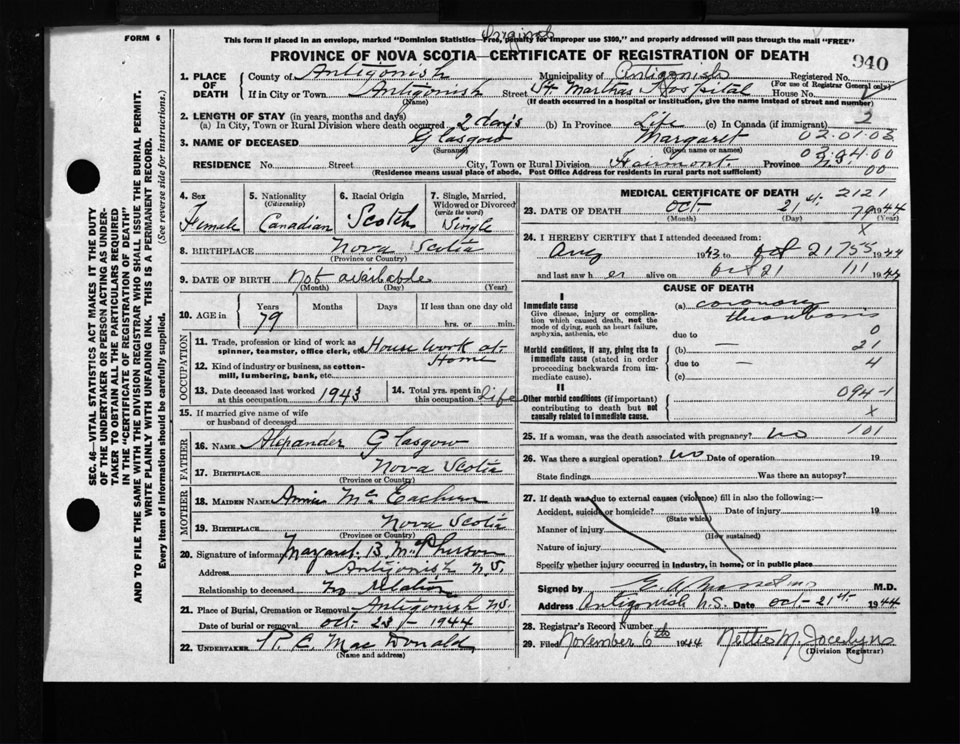 FORM 6
This form if placed in an envelope, marked "Dominion Statistics—Free, penalty for improper use $300," and properly addressed will pass through the mail "FREE"
PROVINCE OF NOVA SCOTIA—CERTIFICATE OF REGISTRATION OF DEATH
940
1. PLACE OF DEATH
County of Antigonish Municipality of Antigonish Registered No.
(For use of Registrar General only)
If in City or Town Antigonish Street St. Marthas Hospital House No.
(Name) (If death occurred in a hospital or institution, give the name instead of street and number)
2. LENGTH OF STAY (in years, months and days)
(a) In City, Town or Rural Division where death occurred 2 days (b) In Province Life (c) In Canada (if immigrant) 2
3. NAME OF DECEASED Glasgow Margaret 02.01.03
(Surname) (Given name or names)
03.04.00
RESIDENCE No. Street City, Town or Rural Division Fairmont. Province N.S.
(Residence means usual place of abode. Post Office Address for residents in rural parts not sufficient) 00
SEC. 46—VITAL STATISTICS ACT MAKES IT THE DUTY
OF THE UNDERTAKER OR PERSON ACTING AS UNDERTAKER
TO OBTAIN ALL THE PARTICULARS REQUIRED
IN THE "CERTIFICATE OF REGISTRATION OF DEATH"
AND TO FILE THE SAME WITH THE DIVISION REGISTRAR WHO SHALL ISSUE THE BURIAL PERMIT.
WRITE PLAINLY WITH UNFADING INK. THIS IS A PERMANENT RECORD.
Every item of information should be carefully supplied. (See reverse side for instructions.)
4. Sex Female
5. Nationality (Citizenship) Canadian
6. Racial Origin Scotch
7. Single, Married, Widowed or Divorced (write the word) Single
8. BIRTHPLACE Nova Scotia
(Province or Country)
9. DATE OF BIRTH Not available
(Month) (Day) (Year)
10. AGE in Years 79 Months Days If less than one day old
hrs. or min.
OCCUPATION
11. Trade, profession or kind of work as spinner, teamster, office clerk, etc. House work at Home
12. Kind of industry or business, as cotton-mill, lumbering, bank, etc.
13. Date deceased last worked at this occupation 1943
14. Total yrs. spent in this occupation Life
15. If married give name of wife or husband of deceased
FATHER
16. NAME Alexander Glasgow
17. BIRTHPLACE Nova Scotia
(Province or Country)
MOTHER
18. MAIDEN NAME Annie McEachern
19. BIRTHPLACE Nova Scotia
(Province or Country)
20. Signature of informant Margaret B. McPherson
Address Antigonish N.S.
Relationship to deceased No relation
21. Place of Burial, Cremation or Removal Antigonish N.S.
Date of burial or removal Oct. 23 1944
22. UNDERTAKER MacDonald
(Name and address)
MEDICAL CERTIFICATE OF DEATH 2121
23. DATE OF DEATH Oct. 21st. 1944
(Month) (Day) (Year)
79
X
24. I HEREBY CERTIFY that I attended deceased from:
Aug 1943 to Oct 21 1944
755
and last saw her alive on Oct 21 1944
111
CAUSE OF DEATH
I
Immediate cause
Give disease, injury or complication which caused death, not the mode of dying, such as heart failure, asphyxia, asthenia, etc
(a) coronary thrombosis
due to 0
Morbid conditions, if any, giving rise to immediate cause (stated in order proceeding backwards from immediate cause).
(b) — 21
due to — 4
(c)
II
Other morbid conditions (if important) contributing to death but not causally related to immediate cause.
094-1
X
25. If a woman, was the death associated with pregnancy? no 101
26. Was there a surgical operation? no Date of operation 19
State findings Was there an autopsy?
27. If death was due to external causes (violence) fill in also the following:—
Accident, suicide or homicide? Date of injury 19
(State which)
Manner of injury
(How sustained)
Nature of injury
Specify whether injury occurred in industry, in home, or in public place
Signed by M.D.
Address Antigonish N.S. Date Oct-21st. 1944
28. Registrar's Record Number
29. Filed November 6th 1944 Nettie M. Jocelyn
(Division Registrar)